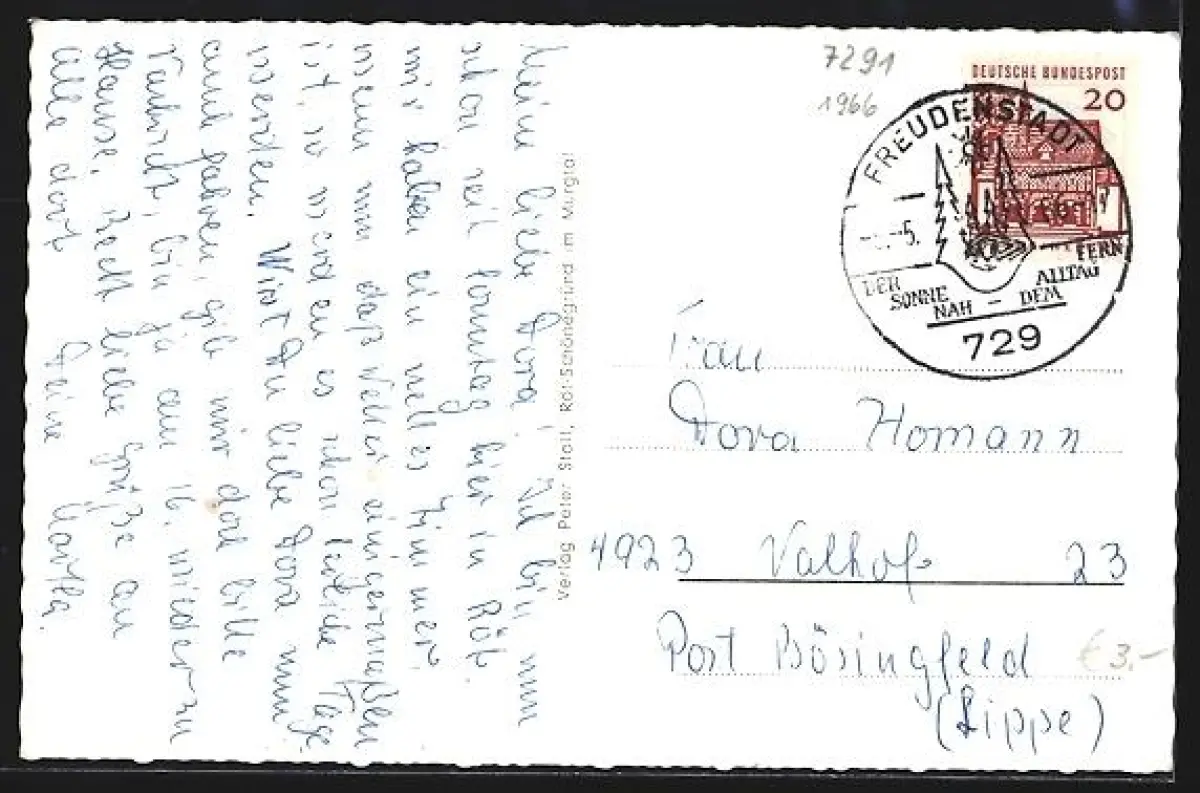 Meine liebe Dora! Ich bin nun
schon seit Sonntag hier in Röt.
wir haben ein nettes Zimmer.
wenn nun das Wetter einigermaßen
ist, so werden es schon schöne Tage
werden. Wirst Du liebe Dora nun
auch fahren, gib mir dort bitte
Nachricht, bin ja am 16. wieder zu
Hause. Recht liebe Grüße an
alle dort
Deine Martha.
Verlag Peter Stoll, Röt-Schönegründ im Murgtal
7291
1966
DEUTSCHE BUNDESPOST
20
FREUDENSTADT
5.
DER SONNE NAH – DEM ALLTAG FERN
729
Frau
Dora Homann
4923 Valhof 23
Post Bösingfeld
(Lippe)
€ 3.-